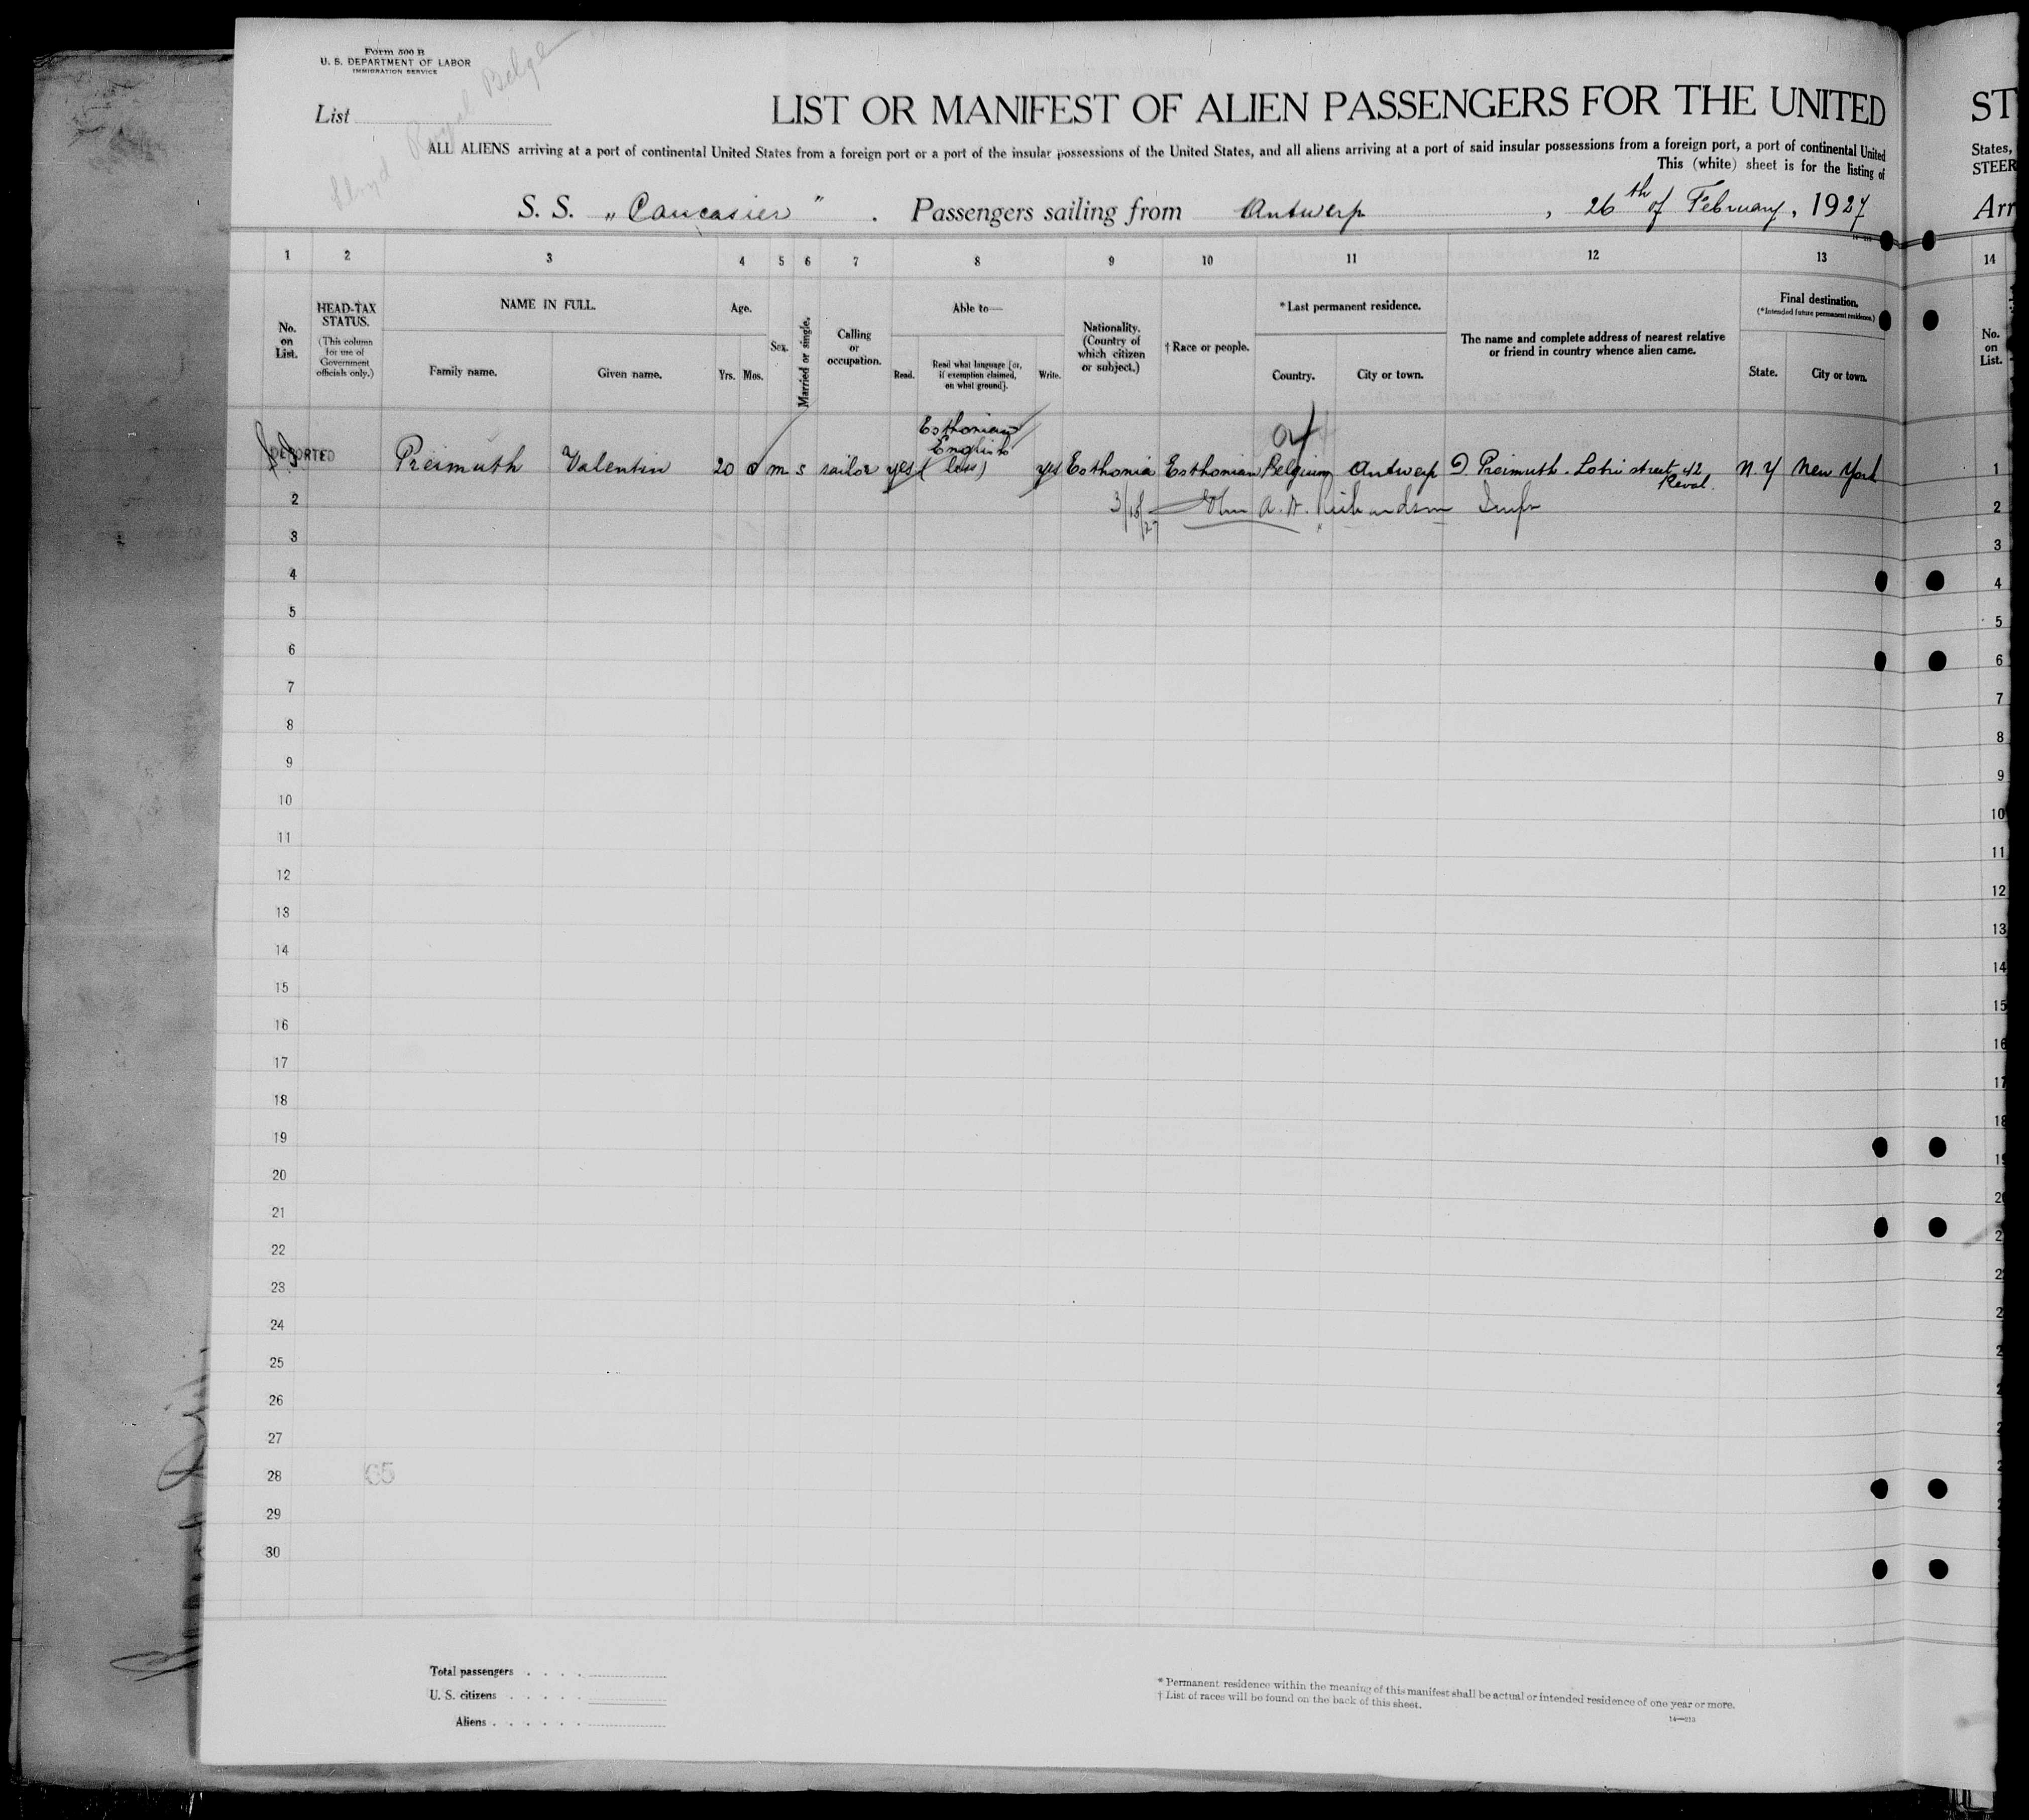 Form 500 B
U. S. DEPARTMENT OF LABOR
IMMIGRATION SERVICE
Lloyd Royal Belge
List
LIST OR MANIFEST OF ALIEN PASSENGERS FOR THE UNITED
ALL ALIENS arriving at a port of continental United States from a foreign port or a port of the insular possessions of the United States, and all aliens arriving at a port of said insular possessions from a foreign port, a port of continental United
This (white) sheet is for the listing of
S. S. „ Caucasier " . Passengers sailing from Antwerp , 26th of February, 1927
1 2 3 4 5 6 7 8 9 10 11 12 13
No. on List.
HEAD-TAX STATUS.
(This column for use of Government officials only.)
NAME IN FULL.
Family name.
Given name.
Age.
Yrs. Mos.
Sex.
Married or single.
Calling or occupation.
Able to—
Read.
Read what language [or, if exemption claimed, on what ground].
Write.
Nationality. (Country of which citizen or subject.)
† Race or people.
* Last permanent residence.
Country.
City or town.
The name and complete address of nearest relative or friend in country whence alien came.
Final destination.
(*Intended future permanent residence.)
State.
City or town.
Esthonian
English
DEPORTED Preimuth Valentin 20 0 m s sailor yes ( less) yes Esthonia Esthonian Belgium Antwerp D. Preimuth. Lotri street 42 N. Y New York
Reval.
3/18/27 A. W. Richardson
2
3
4
5
6
7
8
9
10
11
12
13
14
15
16
17
18
19
20
21
22
23
24
25
26
27
28
65
29
30
Total passengers . . . .
U. S. citizens . . . . .
Aliens . . . . . .
* Permanent residence within the meaning of this manifest shall be actual or intended residence of one year or more.
† List of races will be found on the back of this sheet.
ST
States,
STEER
Arr
14
No. on List.
1
2
3
4
5
6
7
8
9
10
11
12
13
14
15
16
17
18